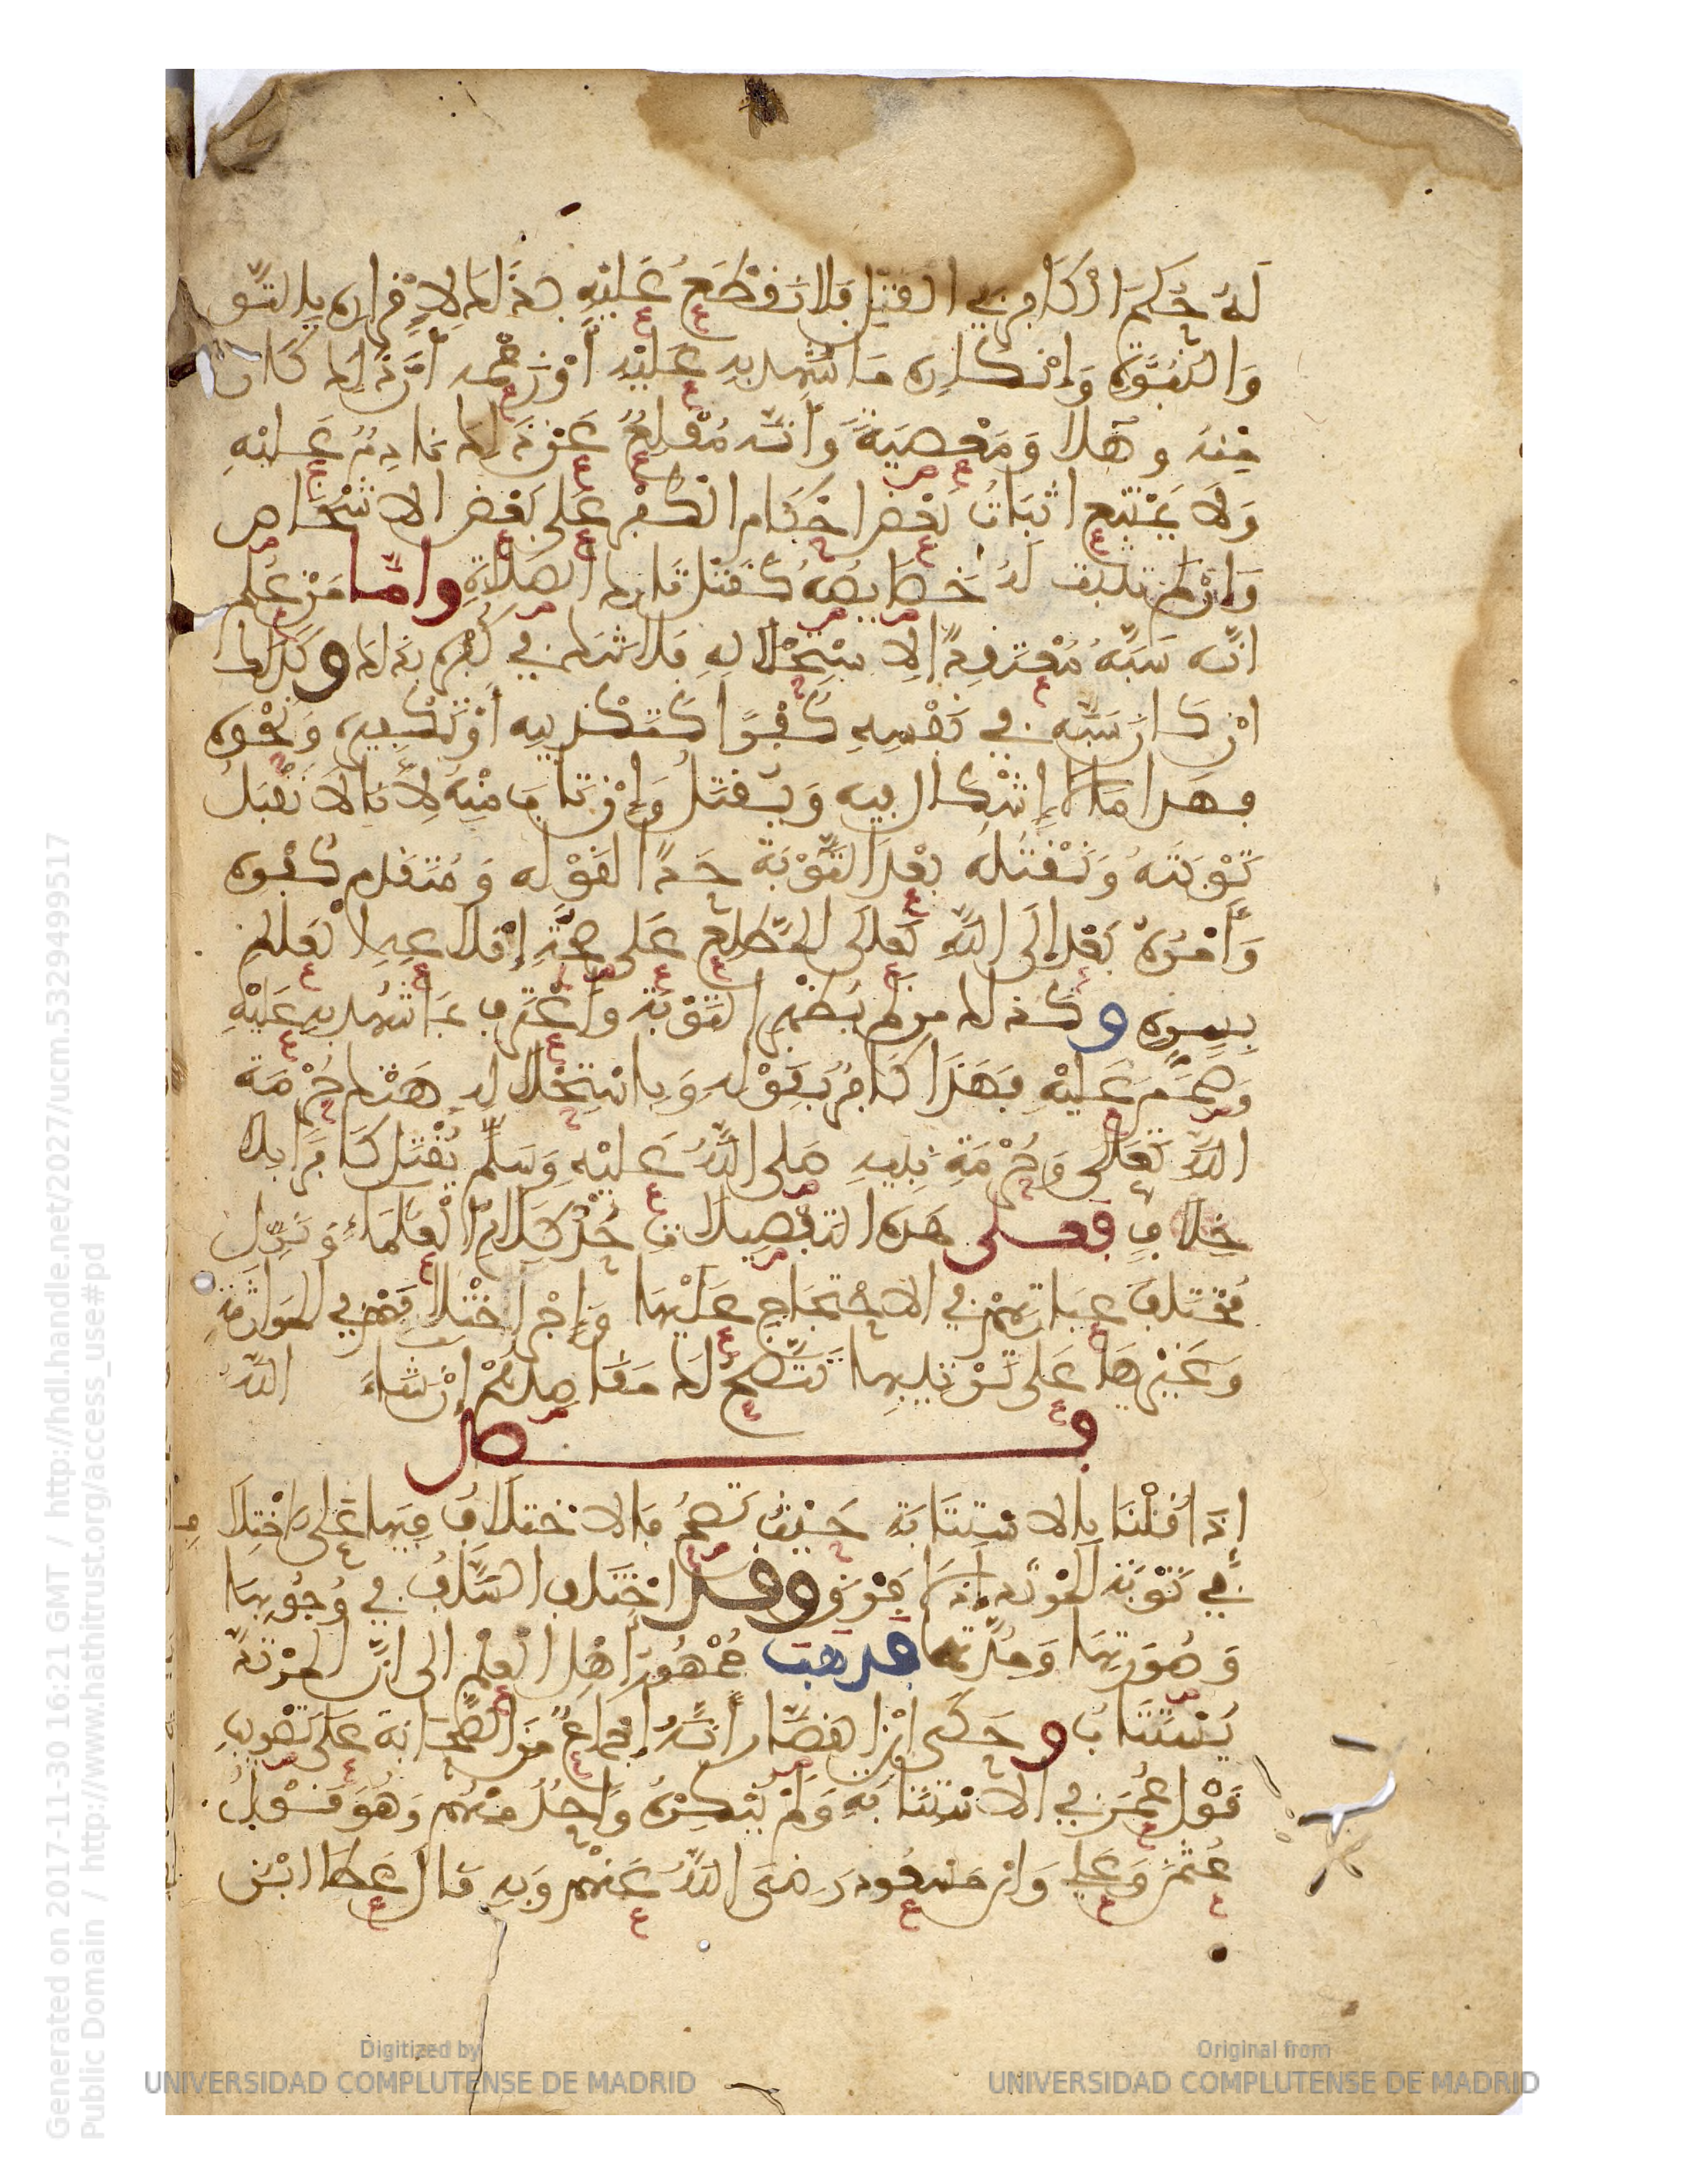 لَهُ حُكْمَ الْكَافِرِ فِي القَتْلِ فَلا نَقْطَعُ عَلَيْهِ بِذَلِكَ لِإِقْرَارِهِ بِالتَّو
وَالنُّبُوَّةِ وَإِنْكَارِهِ مَا شُهِدَ بِهِ عَلَيْهِ أَوْ زَعْمِهِ أَنَّ ذَلِكَ كَانَ
مِنْهُ وَهَلًا وَمَعْصِيَةً وَأَنَّهُ مُقْلِعٌ عَنْ ذَلِكَ نَادِمٌ عَلَيْهِ
وَلَا يَمْتَنِعُ اثْبَاتُ بَعْضِ احْكَامِ الْكُفْرِ عَلَى بَعْضِ الاشْخَاصِ
وَإِنْ لَمْ تَثْبُتْ لَهُ خَصَايِصُهُ كَقَتْلِ تَارِكِ الصَّلَاةِ وَأَمَّا مَنْ عُلِمَ
انَّهُ سَبَّهُ مُعْتَقِدًا لِاسْتِحْلَالِهِ فَلَا شَكَّ فِي كُفْرِهِ بِذَلِكَ وَكَذَلِكَ
انْ كَانَ سَبُّهُ فِي نَفْسِهِ كُفْرًا كَتَكْذِيبِهِ أَوْ تَكْفِيرِهِ وَنَحْوِهِ
فهَذَا مَا لَا إِشْكَالَ فِيهِ وَيُقْتَلُ وَإِنْ تَابَ مِنْهُ لِأَنَّا لَا نَقْبَلُ
تَوْبَتَهُ وَنَقْتُلُهُ بَعْدَ التَّوْبَةِ حَدًّا لِقَوْلِهِ وَمُتَقَدِّمِ كُفْرِهِ
وَأَمْرُهُ بَعْدُ إِلَى اللَّهِ تَعَالَى الْمُطَّلِعِ عَلَى صِحَّةِ إِقْلَاعِهِ الْعَالِمِ
بِسِرِّهِ وَكَذَلِكَ مَنْ لَمْ يُظْهِرِ التَّوْبَةَ وَاعْتَرَفَ بِمَا شُهِدَ بِهِ عَلَيْهِ
وَصَمَّمَ عَلَيْهِ فَهَذَا كَافِرٌ بِقَوْلِهِ وَبِاسْتِحْلَالِهِ هَتْكَ حُرْمَةِ
اللَّهِ تَعَالَى وَحُرْمَةِ نَبِيِّهِ صَلَّى اللَّهُ عَلَيْهِ وَسَلَّمَ يُقْتَلُ كَافِرًا بِلَا
خِلَافٍ فَعَلَى هَذِهِ التَّفْصِيلَاتِ خُذْ كَلَامَ الْعُلَمَاءِ وَنَزِّلْ
مُخْتَلِفَ عِبَارَاتِهِمْ فِي الاحْتِجَاجِ عَلَيْهَا وَإِجْرِ اخْتِلَافَهُمْ فِي الْمُوَارَثَةِ
وَغَيْرِهَا عَلَى تَرْتِيبِهَا تَتَّضِحْ لَكَ مَقَاصِدُهُمْ إِنْ شَاءَ اللَّهُ
فصل
إِذَا قُلْنَا بِالاسْتِتَابَةِ حَيْثُ تَصِحُّ فَالاخْتِلَافُ فِيهَا عَلَى الاخْتِلَافِ
فِي تَوْبَةِ الْمُرْتَدِّ إِذْ لَا فَرْقَ وَقَدِ اخْتَلَفَ السَّلَفُ فِي وُجُوبِهَا
وَصُورَتِهَا وَمُدَّتِهَا فَذَهَبَ جُمْهُورُ أَهْلِ الْعِلْمِ إلى انَّ الْمُرْتَدَّ
يُسْتَتَابُ وَحَكَى ابْنُ الْقَصَّارِ أَنَّهُ إِجْمَاعٌ مِنَ الصَّحَابَةِ عَلَى تَصْوِيبِ
قَوْلِ عُمَرَ فِي الاسْتِتَابَةِ وَلَمْ يُنْكِرْهُ وَاحِدٌ مِنْهُمْ وَهُوَ قَوْلُ
عُثْمَنَ وَعَلِي وَابْنِ مَسْعُودٍ رَضِيَ اللَّهُ عَنْهُمْ وَبِهِ قَالَ عَطَا ابْنُ
Generated on 2017-11-30 16:21 GMT / http://hdl.handle.net/2027/ucm.5329499517
Public Domain / http://www.hathitrust.org/access_use#pd
Digitized by
UNIVERSIDAD COMPLUTENSE DE MADRID
Original from
UNIVERSIDAD COMPLUTENSE DE MADRID